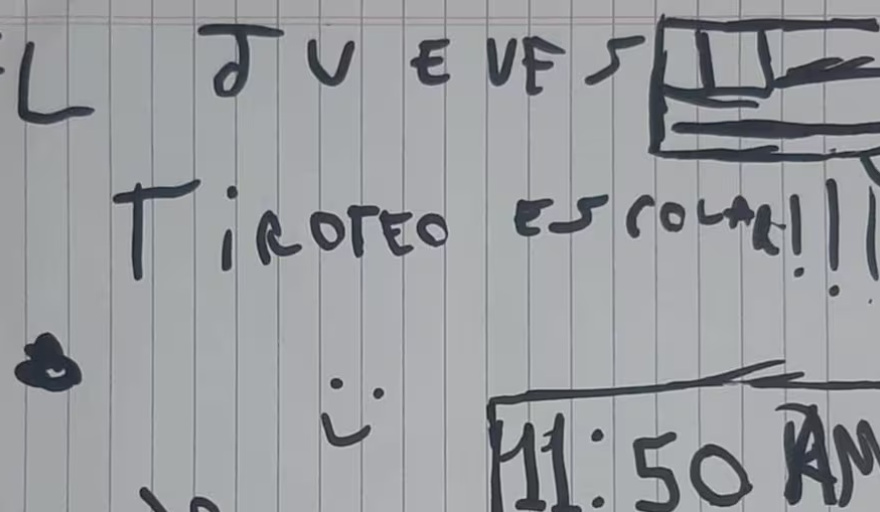 EL JUEVES
TiROTEO ESCOLAR!!!
11:50 AM